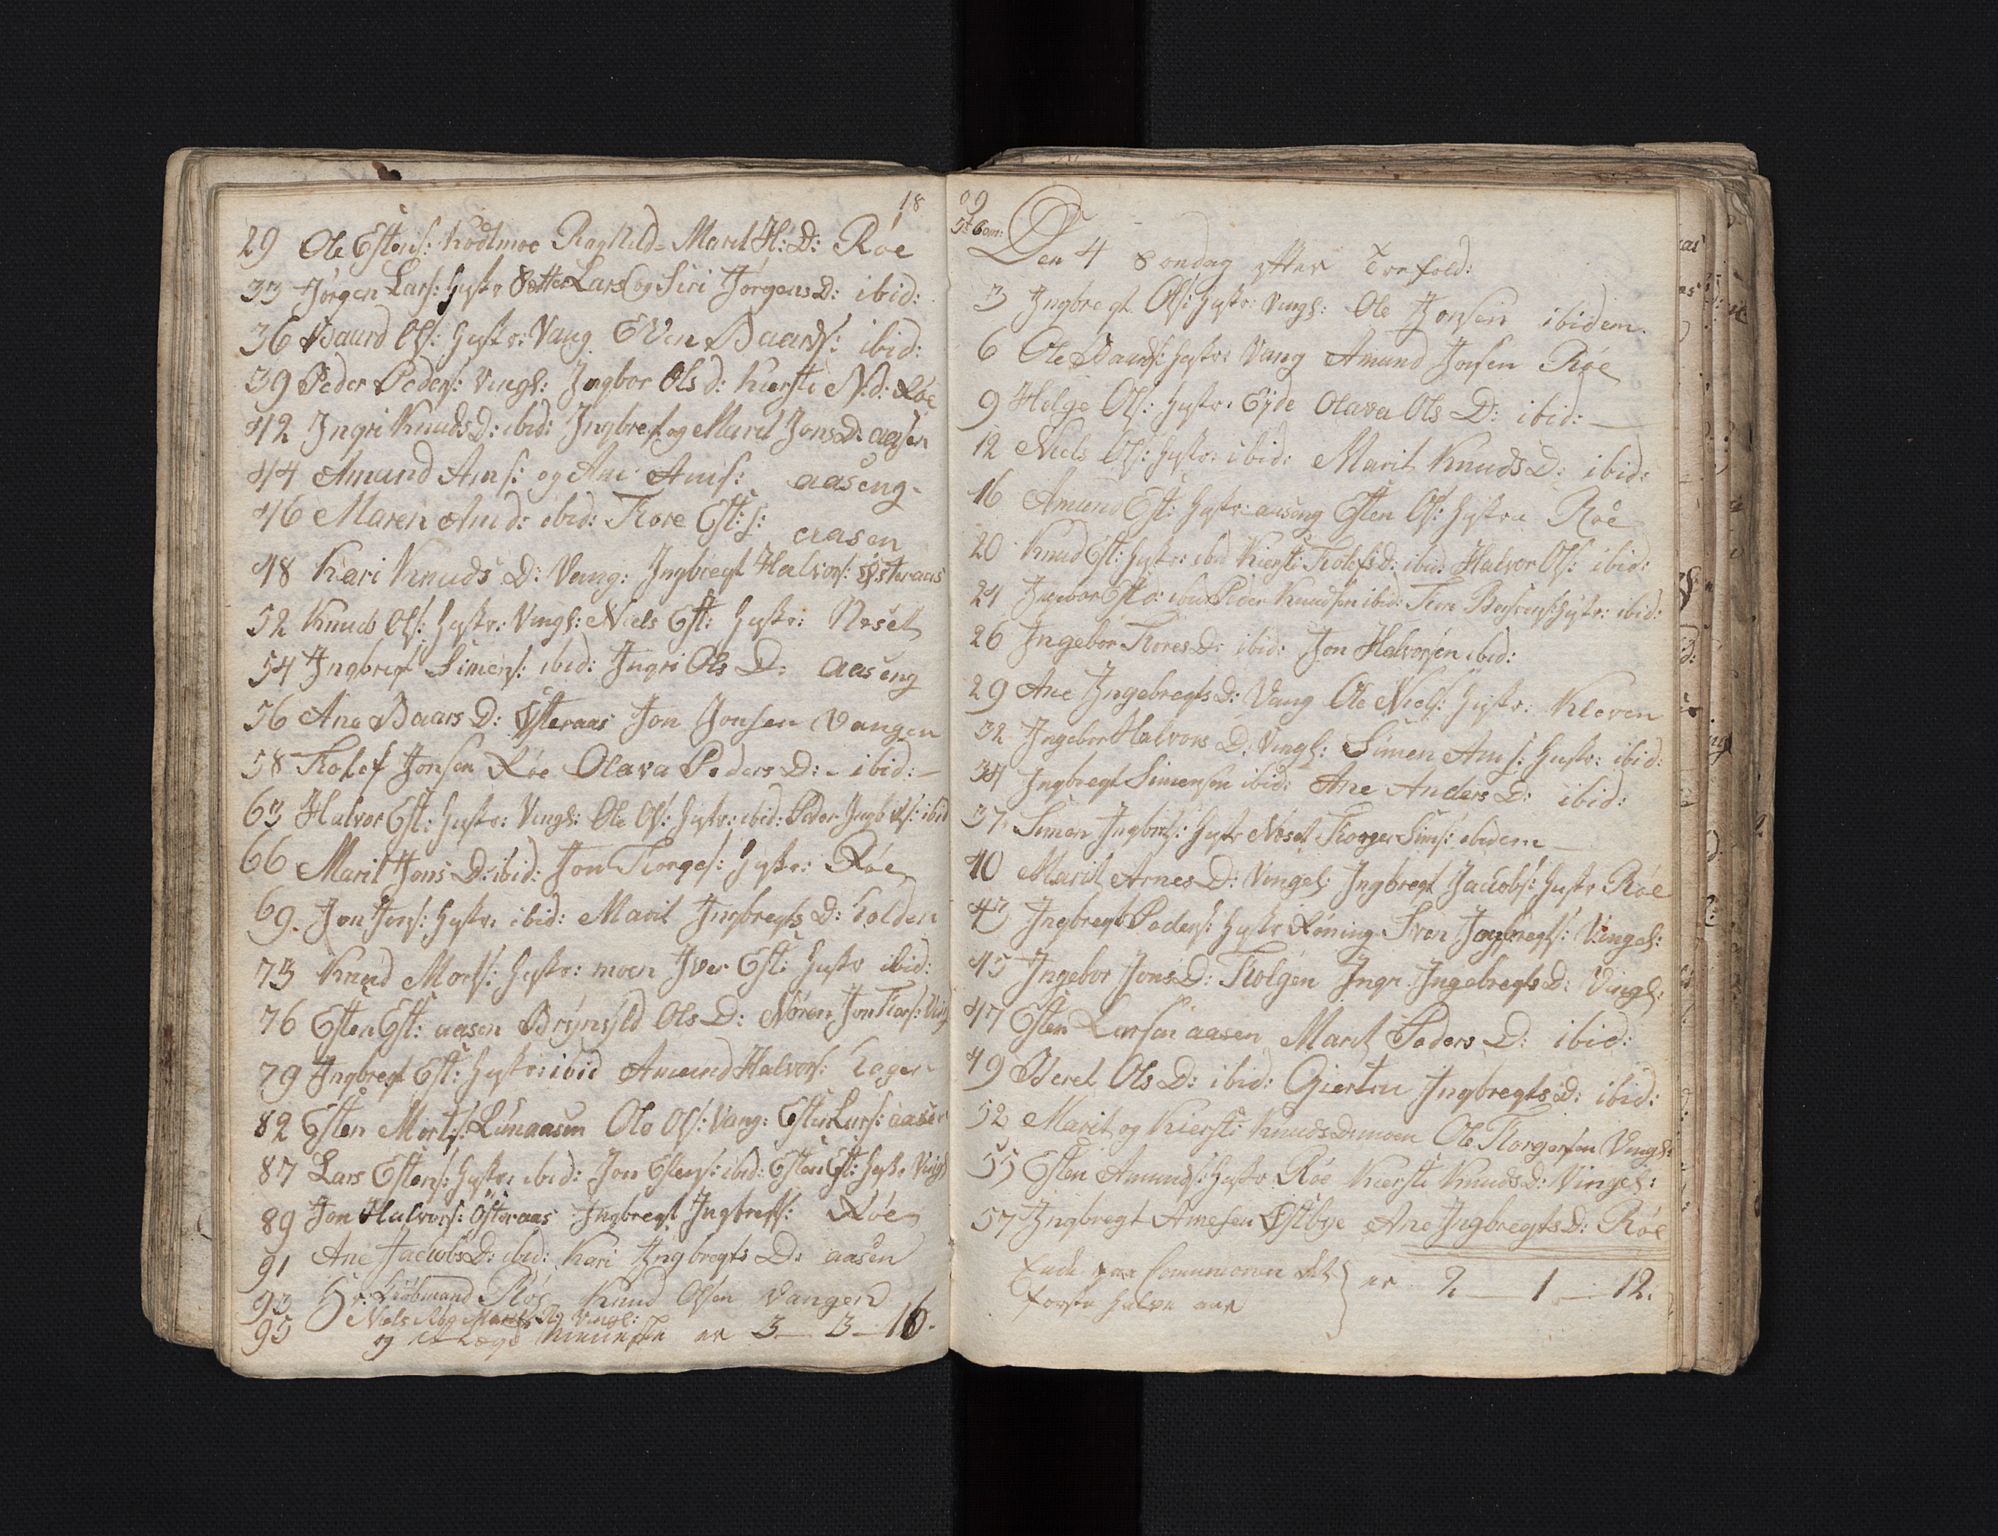 18
29 Ole Estens: Kodtmoe Ragnild Marit H: D: Røe
33 Jørgen Lars: Hustr: Lars og Siri Jørgens D: ibid:
36 Baard Ols: Hustr: Vang Even Baards: ibid:
39 Peder Peders: Vingl: Ingbor Ols d: Kiersti N: d: Røe
42 Ingri Knuds D: ibid: Ingbregt og Marit Jons D: aasen
44 Amund Am s: og Ane Am s: aaseng
46 Maren Am d: ibid: Tore Est: s: aasen
48 Kari Knuds D: Vang: Ingbregt Halvors: Østeraas
52 Knud Ols: Hustr: Vingl: Niels Est: Hustr: Neset
54 Ingbregt Simens: ibid: Ingri Ols D: aaseng
56 Ane Baars D: Østeraas Jon Jonsen Vangen
58 Tolef Jonsen Røe Olava Peders D: ibid:
63 Halvor Est: Hustr: Vingl: Ole Ols: Hustr: ibid: Peder Ingb s: ibid
66 Marit Jons D: ibid: Jon Torges: Hustr: Røe
69. Jon Jons: Hustr: ibid: Marit Ingbregts D: Holden
73 Knud Morts: Hustr: moen Iver Est: Hustr ibid:
76 Esten Est: aasen Brynyld Ols D: Nøren Jon Tors: Ving
79 Ingbregt Est: Hustr: ibid Amund Halvors: Hogen
82 Esten Morts: Lunaasen Ole Ols: Vang: Esten Lars: aasen
87 Lars Estens: Hustr: ibid: Jon Estens: ibid: Esten Est: Hustr Vingl
89 Jon Halvors: Østeraas Ingbregt Ingbregts: Røe
91 Ane Jacobs D: ibid: Kari Ingbregts D: aasen
93 Hr: Røs Knud Olsen Vangen
Niels Vingl:
95 og er 3 — 3 — 16.
99
Den 4 Søndag efter Trefold:
3 Ingbregt Ols: Hustr: Vingl: Ole Jonsen ibidem.
6 Ole Baards: Hustr: Vang Amund Jonsen Røe
9 Helge Ols: Hustr: Eide Olava Ols D: ibid:
12 Niels Ols: Hustr: ibid: Marit Knuds D: ibid:
16 Amund Est: Hustr: aaseng Esten Ols: Hustru Røe
20 Knud Est: Hustr: ibid Kiersti Tolefs D: ibid: Halvor Ols: ibid:
24 Ingebor Est D: ibid Peder Knudsen ibid: Tore Hustr: ibid:
26 Ingebor Tores D: ibid: Jon Halvorsen ibid:
29 Ane Ingebregts D: Vang Ole Niels: Hustr: Kleven
32 Ingebor Halvors D: Vingl: Simen Am s: Hustr: ibid:
34 Ingbregt Simensen ibid: Ane Anders D: ibid:
37 Simen Ingbrts: Hustr Neset Torger Sims: ibidem
40 Marit Arnes D: Vingel: Ingbregt Jacobs: Hustr Røe
43 Ingbregt Peders: Hustr Røning Sven Ingbregts: Vingel:
45 Ingebor Jons D: Tolgen Ingr: Ingebregts D: Vingl:
47 Esten Larsen aasen Marit Peders D: ibid:
49 Beret Ols D: ibid: Giertru Ingbregts D: ibid:
52 Marit og Kiersti Knuds D: moen Ole Torgersen Vingl:
55 Esten Amunds: Hustr Røe Kiersti Knuds D: Vingel:
57 Ingbregt Arnesen Østbye Ane Ingbregts D: Røe
Ende paa Comunionen det } er 2 — 1 — 12.
første halve aar